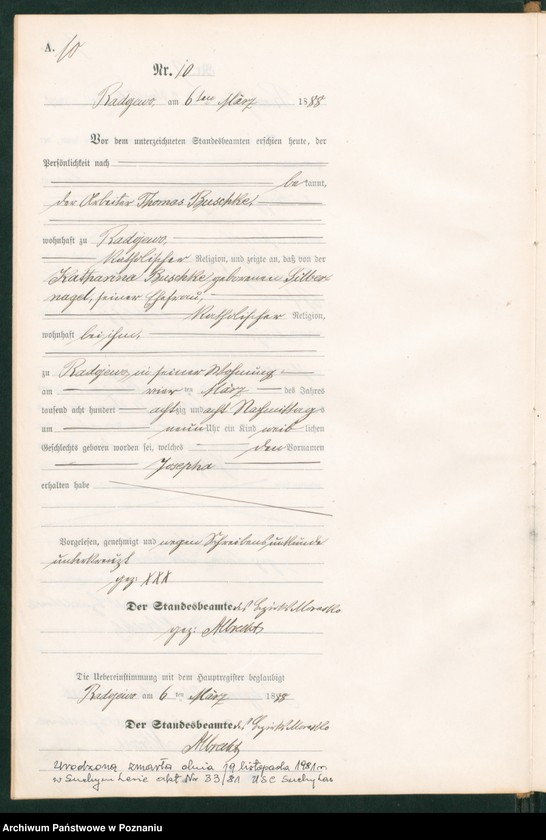 A. 10
Nr. 10
Radojewo, am 6ten März 1888
Vor dem unterzeichneten Standesbeamten erschien heute, der
Persönlichkeit nach
bekannt,
der Arbeiter Thomas Buschke
wohnhaft zu Radojewo,
katholischer Religion, und zeigte an, daß von der
Katharina Buschke geborenen Silber
nagel, seiner Ehefrau,
katholischer Religion,
wohnhaft bei ihm,
zu Radojewo, in seiner Wohnung
am vier ten März des Jahres
tausend acht hundert achtzig und acht Nachmittags
um neun Uhr ein Kind weiblichen
Geschlechts geboren worden sei, welches den Vornamen
Josepha
erhalten habe
Vorgelesen, genehmigt und wegen Schreibensunkunde
unterkreuzt
gez: XXX
Der Standesbeamte des Bezirks Morasko
gez: Albrecht
Die Uebereinstimmung mit dem Hauptregister beglaubigt
Radojewo am 6 ten März 1888
Der Standesbeamte des Bezirks Morasko
Albrecht
Urodzona zmarła dnia 19 listopada 1981 r
w Suchym Lesie akt Nr 33/81 USC Suchy Las
Archiwum Państwowe w Poznaniu